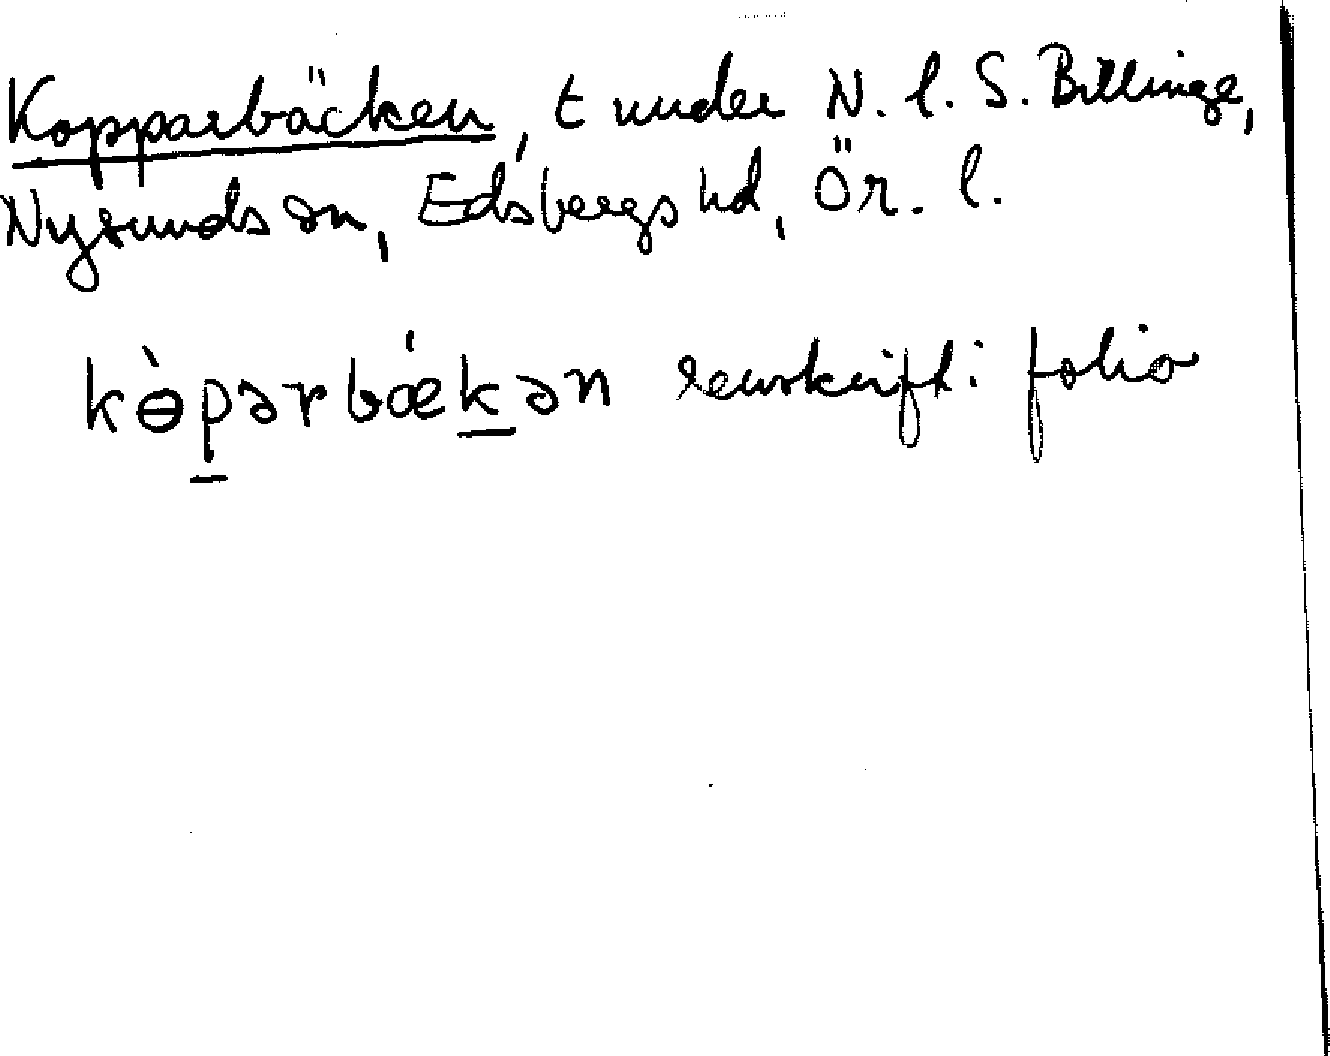 Kopparbäcken, t under N. l. S. Billinge,
Nysunds sn, Edsbergs hd, Ör. l.
kɵ̀pərbǽkən renskrift i folio